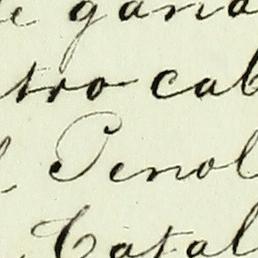 e gana
tro cab
Penol
Catal